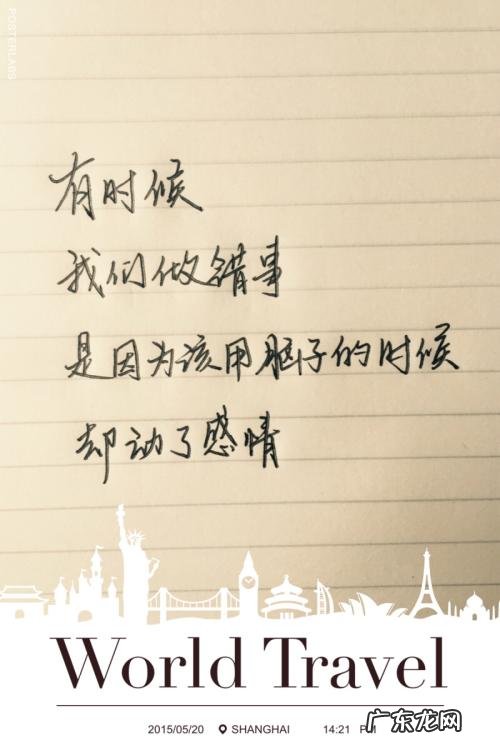 POSTERLABS
有时候
我们做错事
是因为该用脑子的时候
却动了感情
World Travel
2015/05/20 SHANGHAI 14:21 PM
广东龙网